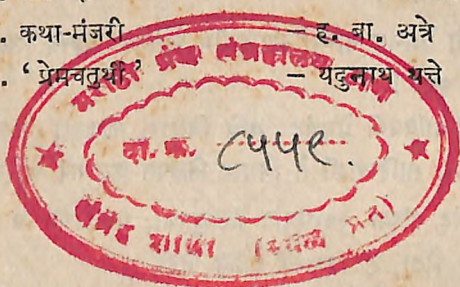 . कथा-मंजरी – ह. बा. अत्रे
. ‘ प्रेमचतुर्थी’ – यदुनाथ थत्ते
मराठी ग्रंथ संग्रहालय
दा. क्र. ८५५९.
शाखा (स्थळ प्रत)